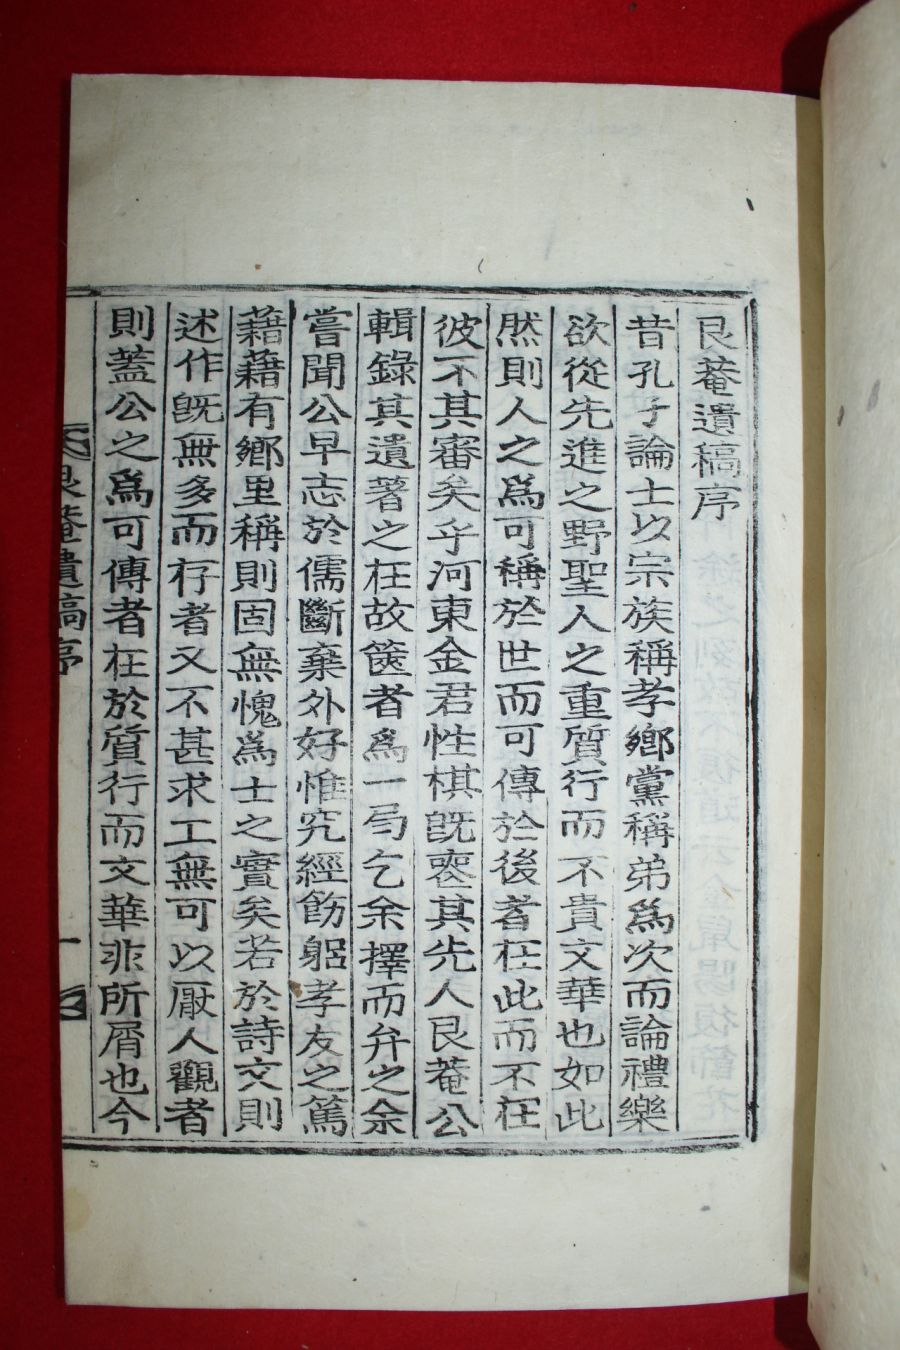 艮菴遺稿序
昔孔子論士以宗族稱孝鄕黨稱弟爲次而論禮樂
欲從先進之野聖人之重質行而不貴文華也如此
然則人之爲可稱於世而可傳於後者在此而不在
彼不其審矣乎河東金君性棋旣喪其先人艮菴公
輯錄其遺著之在故篋者爲一局乞余擇而弁之余
嘗聞公早志於儒斷棄外好惟究經飭躬孝友之篤
藉藉有鄕里稱則固無愧爲士之實矣若於詩文則
述作旣無多而存者又不甚求工無可以厭人觀者
則蓋公之爲可傳者在於質行而文華非所屑也今
艮菴遺稿序
一